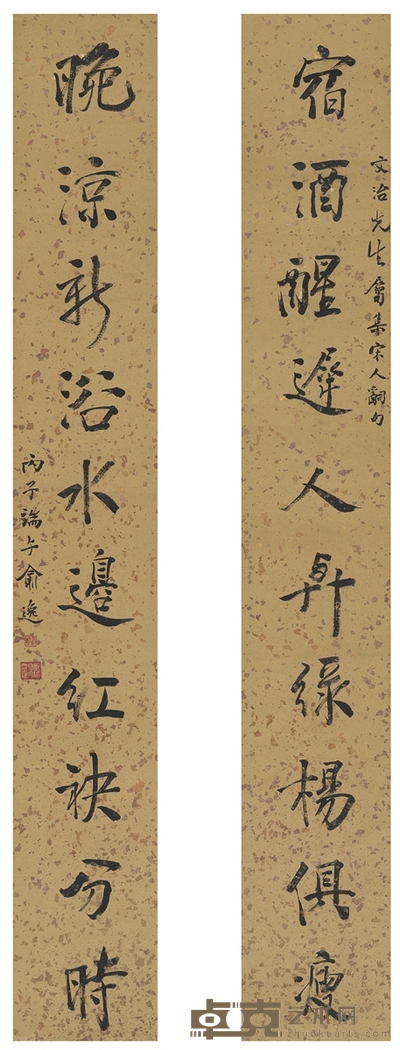 宿酒醒遲人與綠楊俱瘦
文治先生屬集宋人詞句
晚涼新浴水邊紅袂分時
丙子端午俞逸
卓克艺术网